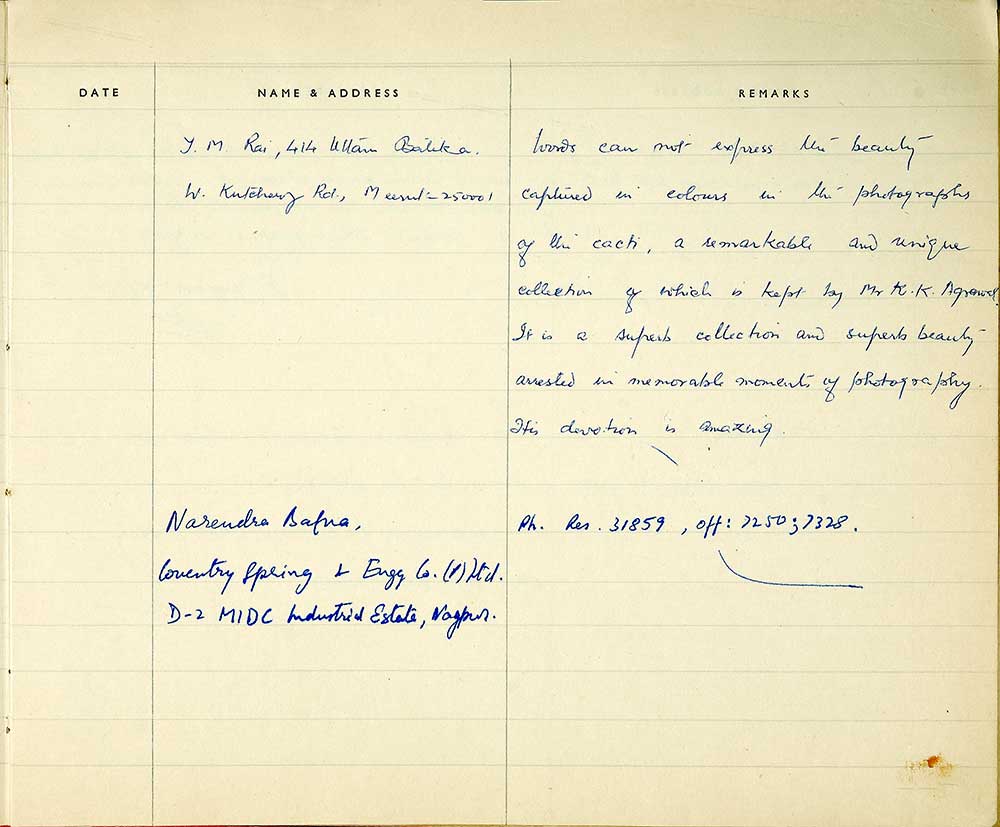 DATE NAME & ADDRESS REMARKS
Y. M. Rai, 414 Uttam Batika.
W. Kutchery Rd., Meerut - 250001
Words can not express the beauty
captured in colours in the photographs
of the cacti, a remarkable and unique
collection of which is kept by Mr K.K. Agrawal.
It is a superb collection and superb beauty
arrested in memorable moments of photography.
His devotion is amazing.
Narendra Bafna,
Coventry Spring & Engg Co. (P) Ltd.
D-2 MIDC Industrial Estate, Nagpur.
Ph. Res. 31859, Off: 7250; 7328.